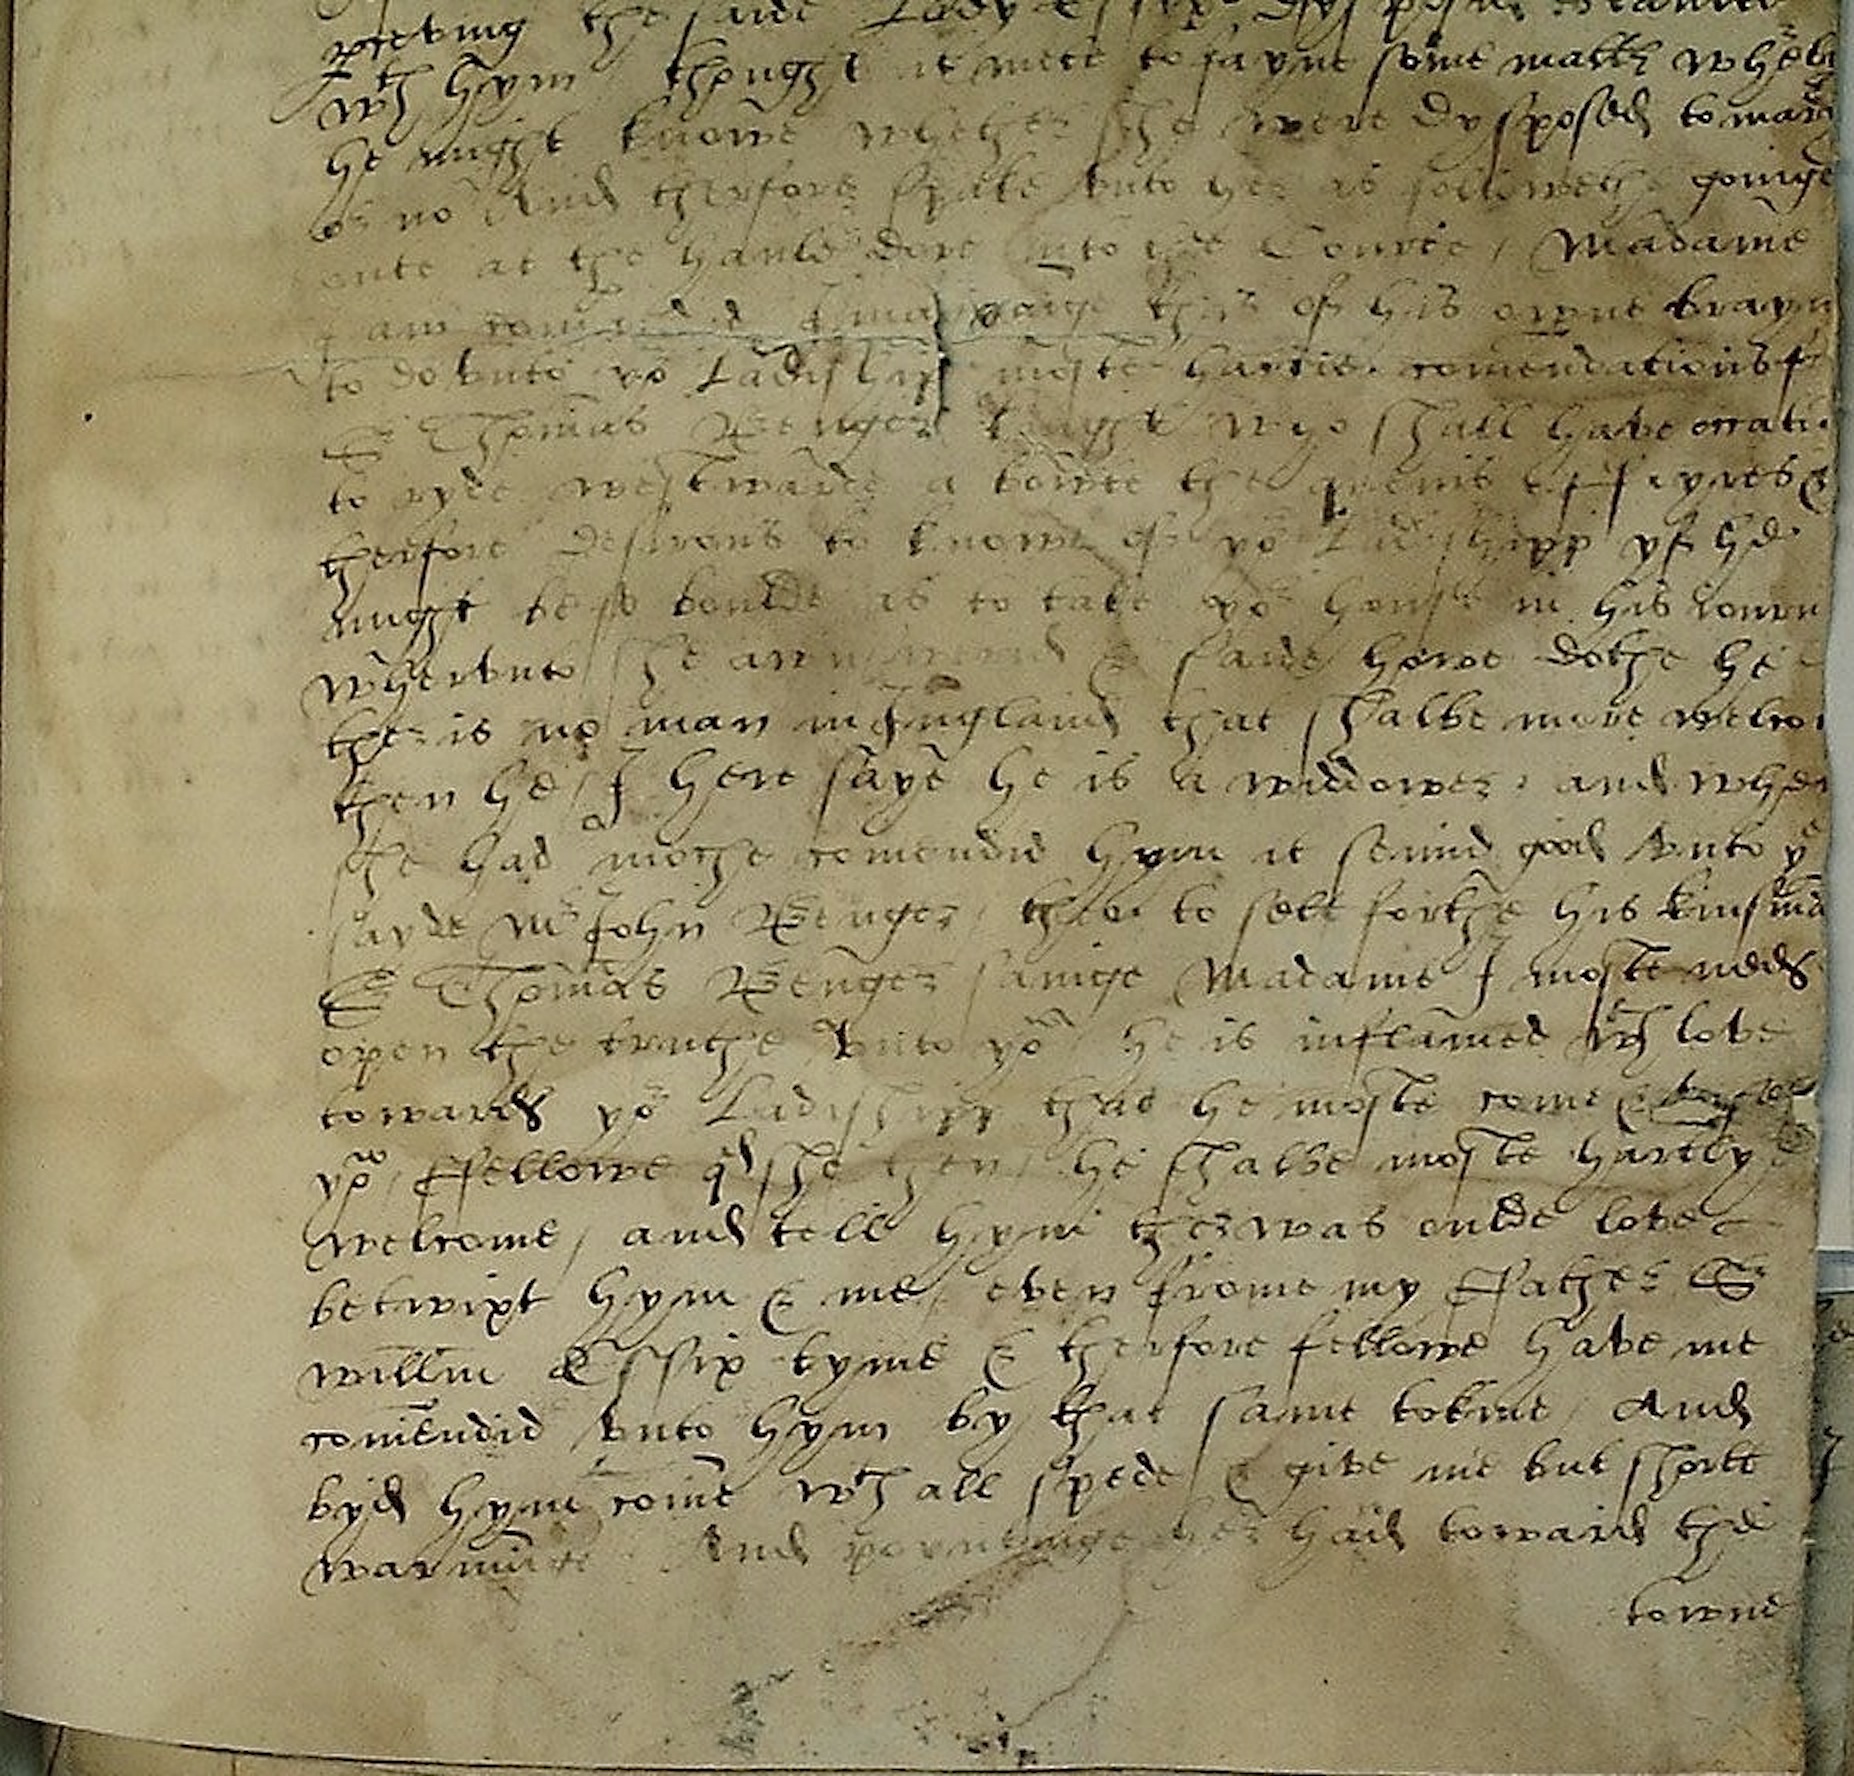 the saide Lady Essex
wth hym thought it mete to fayne some matt wherby
he might knowe whether she were dysposed to mary
or no And therfore spake vnto her as followeth goinge
oute at the haule dore into the Courte / Madame
I am this of his owne brayn
to do vnto yor Ladishipp moste hartie comendations fr
Sr Thomas Benger knight who shall have occati
to ryde westwarde a bowte the quenis affayres &
therfore desirous to knowe of yor Ladishipp yf he
might be so boulde as to take yor house in his
Whervnto she & saide howe dothe he
ther is no man in Ingland that shalbe more welco
then he / I here saye he is a widdower and when
she had moche comendid hym it semid good vnto ye
sayde Mr John Benger then to sett forthe his kinsma
Sr Thomas Benger sainge Madame I moste nedes
open the truthe vnto you he is inflamed wth love
towards yor Ladishipp that he moste come &
you / ffellowe qd she then he shalbe moste hartely
welcome / and tell hym ther was oulde love
betwixt hym & me even frome my ffather Sr
willm Essix tyme & therfore fellowe have me
comendid vnto hym by that same tokine / And
byd hym come wth all spede & give me but shorte
warninge And poyntinge her hand toward the
towne